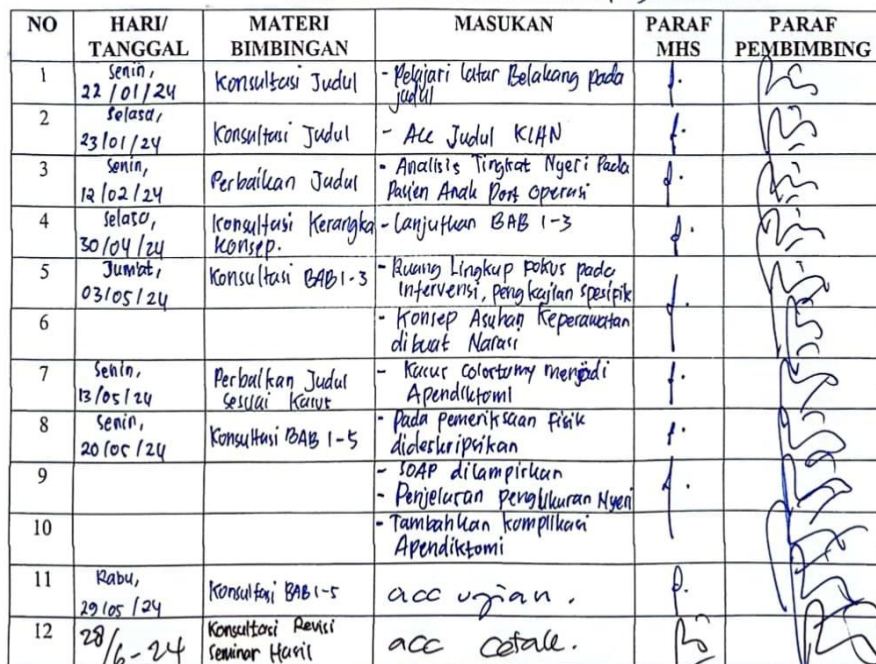 NO HARI/ TANGGAL MATERI BIMBINGAN MASUKAN PARAF MHS PARAF PEMBIMBING
1 Senin, 22/01/24 Konsultasi Judul - Pelajari Latar Belakang pada judul
2 Selasa, 23/01/24 Konsultasi Judul - Acc Judul KIAN
3 Senin, 12/02/24 Perbaikan Judul - Analisis Tingkat Nyeri Pada Pasien Anak Post Operasi
4 Selasa, 30/04/24 Konsultasi Kerangka Konsep. - Lanjutkan BAB 1-3
5 Jumat, 03/05/24 Konsultasi BAB 1-3 - Ruang Lingkup Fokus pada Intervensi, pengkajian spesifik
6 - Konsep Asuhan Keperawatan dibuat Narasi
7 Senin, 13/05/24 Perbaikan Judul Sesuai Kasus - Kasus colostomy menjadi Apendiktomi
8 Senin, 20/05/24 Konsultasi BAB 1-5 - Pada pemeriksaan fisik dideskripsikan
9 - SOAP dilampirkan
- Penjelasan pengukuran Nyeri
10 - Tambahkan komplikasi Apendiktomi
11 Rabu, 29/05/24 Konsultasi BAB 1-5 acc ujian.
12 28/6-24 Konsultasi Revisi Seminar Hasil acc cetak.